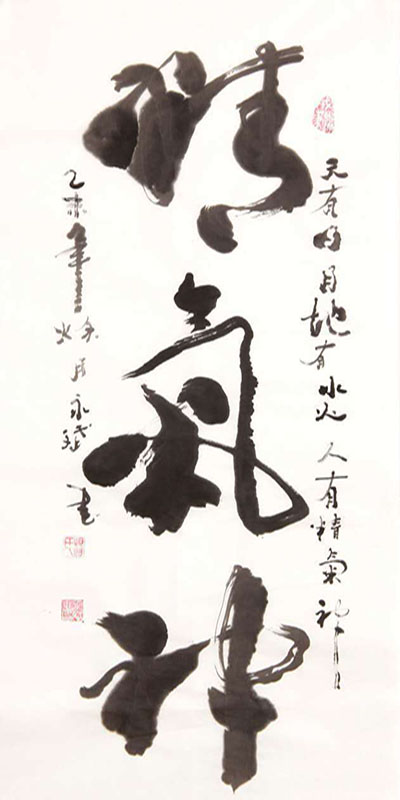 天有日月地有水火人有精氣神
精氣神
乙未年秋月永斌書